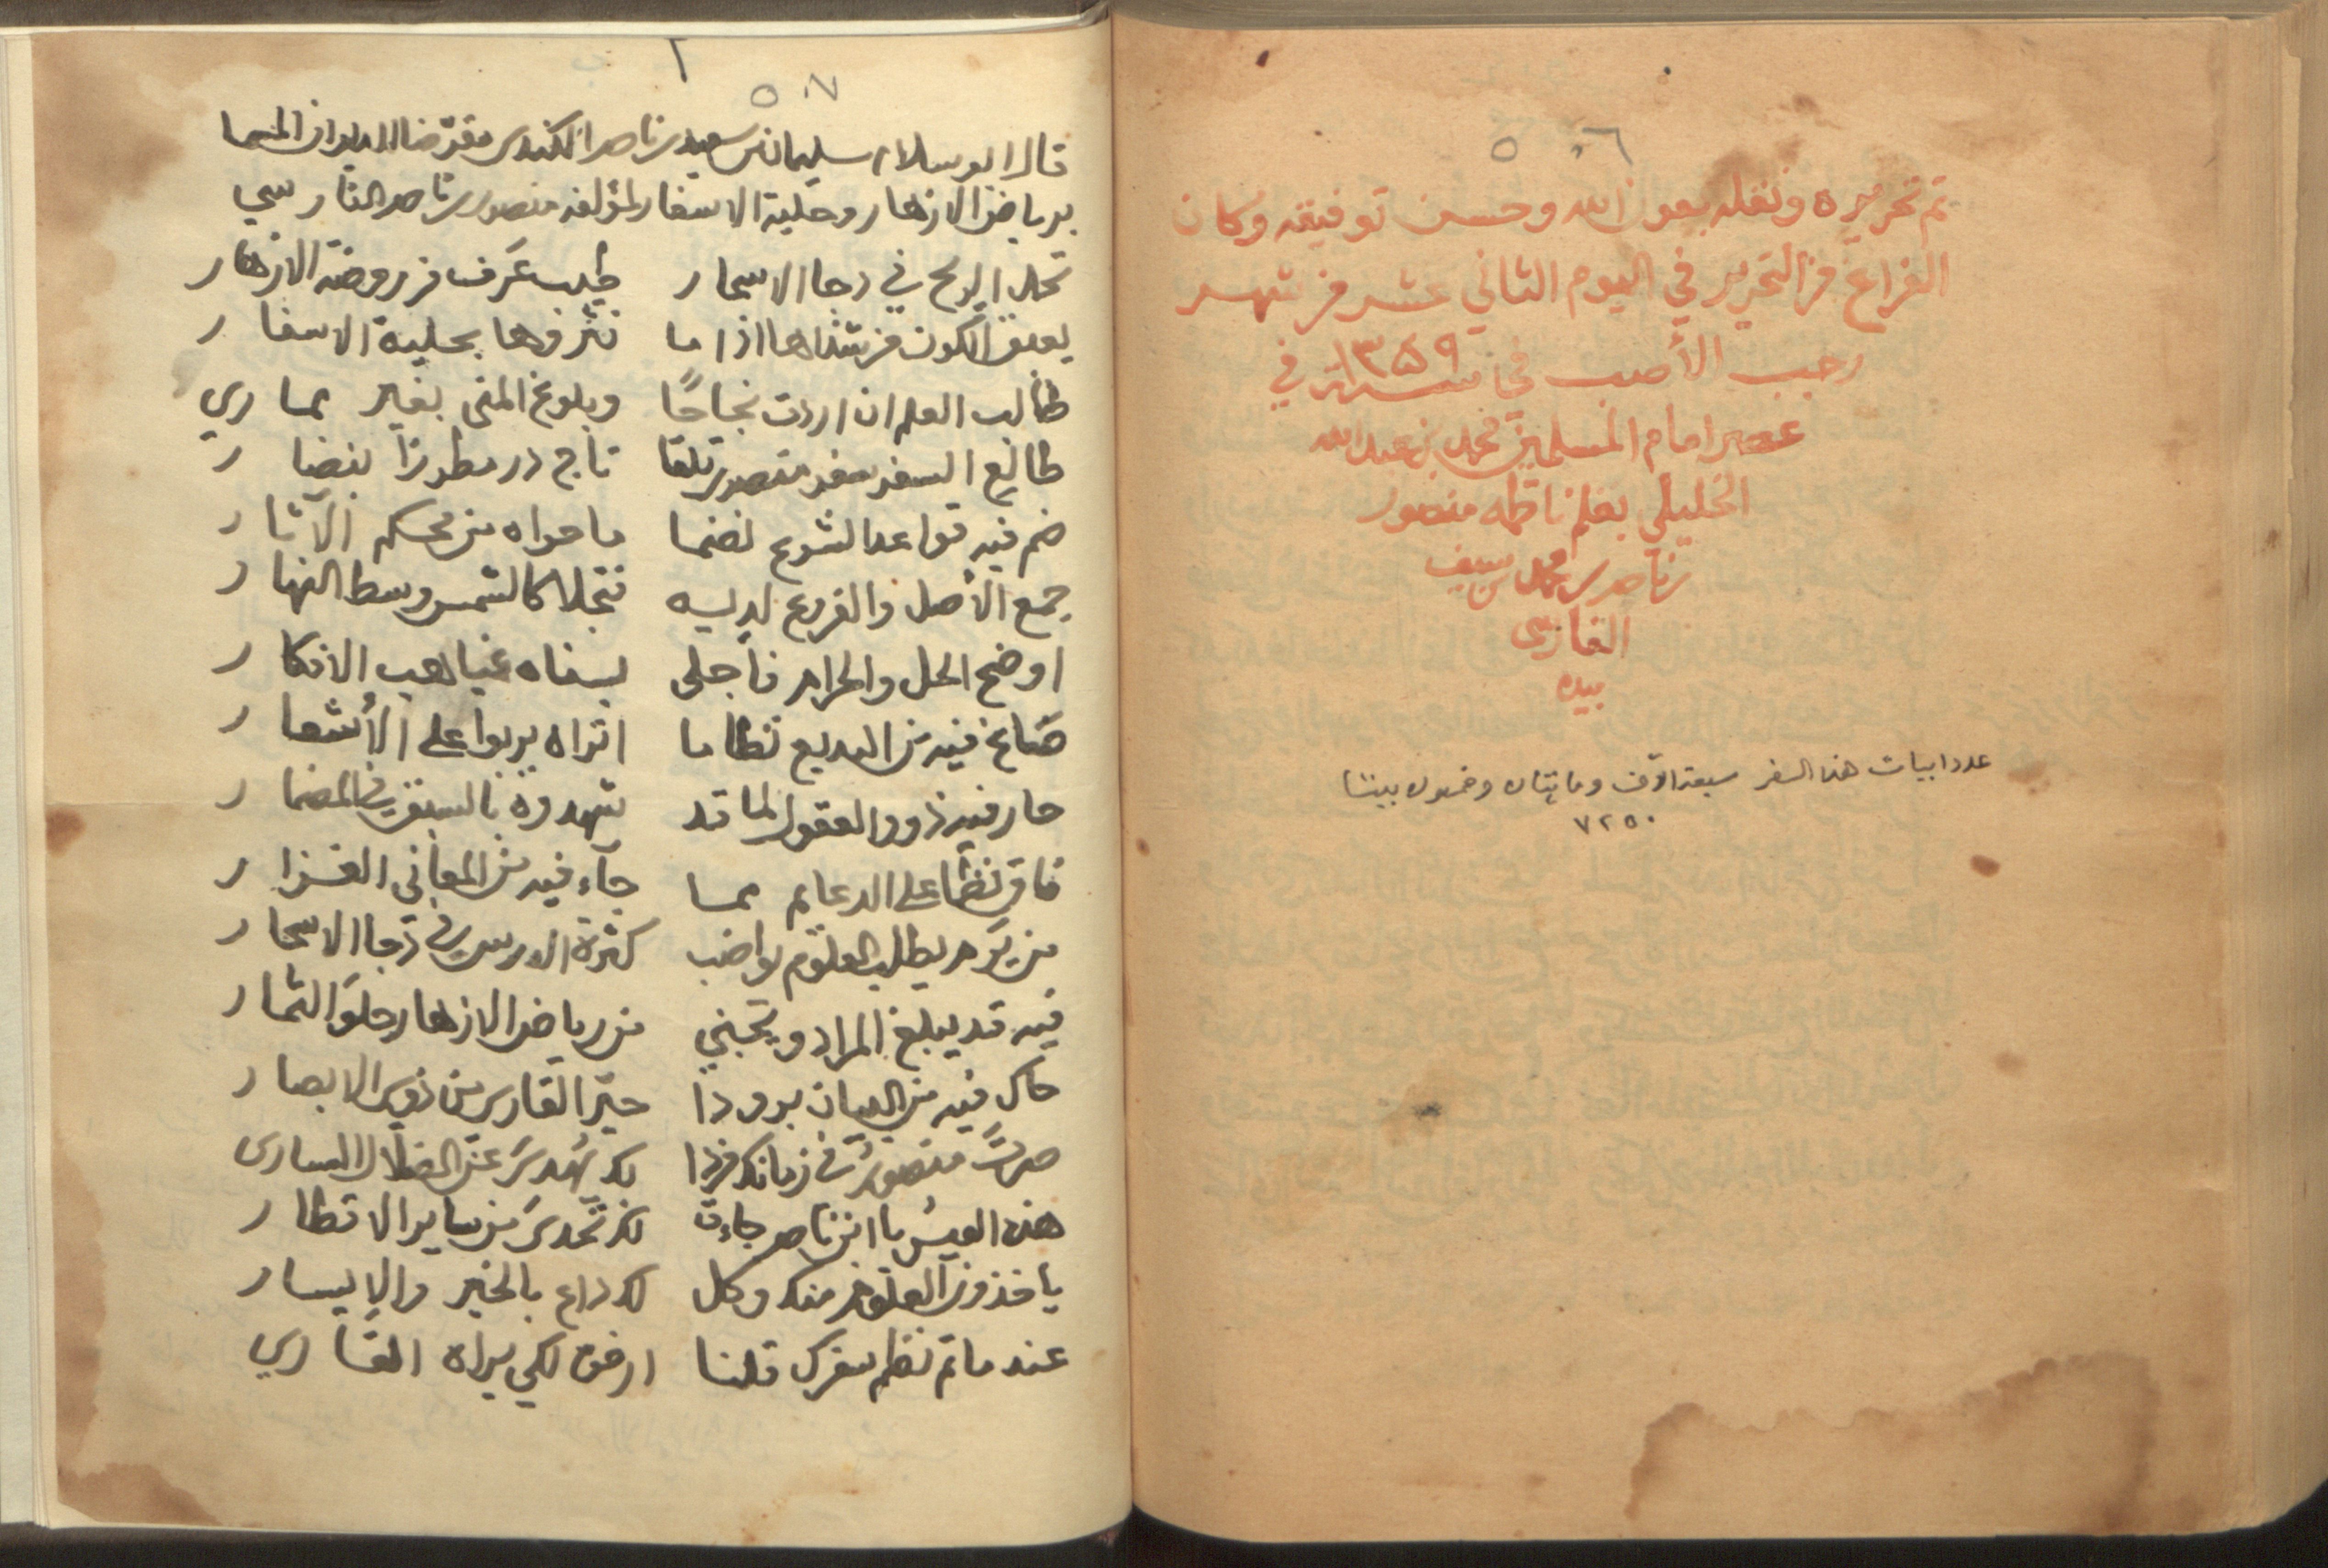 ٥٠٦
تم تحريره ونقله بعون الله وحسن توفيقه وكان
الفراغ من التحرير في اليوم الثاني عشر من شهر
رجب الأصب في سنة ١٣٥٩ في
عصر امام المسلمين محمد بن عبدالله
الخليلي بقلم ناظمه منصور
بن ناصر بن محمد بن سيف
الفارسي
بيده
عدد ابيات هذا السفر سبعة الآف ومايتان وخمسون بيتا
٧٢٥٠
٥٠٧
قال ابو سلام سليمان بن سعيد بن ناصر الكندي مقرضا الديوان المسما
برياض الازهار وحلية الاسفار لمؤلفه منصور بن ناصر الفارسي
تحمل الريح في دجا الاسحار طيب عَرف من روضة الازهار
يعبق الكون من شذاها اذا ما نثروها بحلية الاسفار
طالب العلم ان اردت نجاحًا وبلوغ المنى بغير مماري
طالع السفر سفر منصور تلقا تاج در مطرزا بنضار
ضم فيه قواعد الشرع نضما ما حواه من محكم الآثار
جمع الأصل والفرع لديه فتجلا كالشمس وسط النهار
اوضح الحل والحرام فأجلى بسناه غياهب الافكار
صَاغ فيه من البديع نظاما اتراه يربوا على الأشعار
حار فيه ذووا العقول لما قد شهدوه بالسبق في المضمار
فاق نضما على الدعايم مما جآء فيه من المعاني الغزار
من يَرم يطلب العلوم يواضب كثرة الدرس في دجا الاسحار
فيه قد يبلغ المراد ويجني من رياض الازهار حلوَ الثمار
حاك فيه من البيان برودا حيّر القارس من ذوي الابصار
صرتَ منصورُ في زمانك فردا بك يُهدى عن الضلال السارى
هذه العيسُ يا ابن ناصر جاءت لك تُحدى من ساير الاقطار
ياخذون العلوم منك وكل لك داع بالخير والايسار
عند ما تم نظم سفرك قلنا ارخوه لكي يراه القَاري